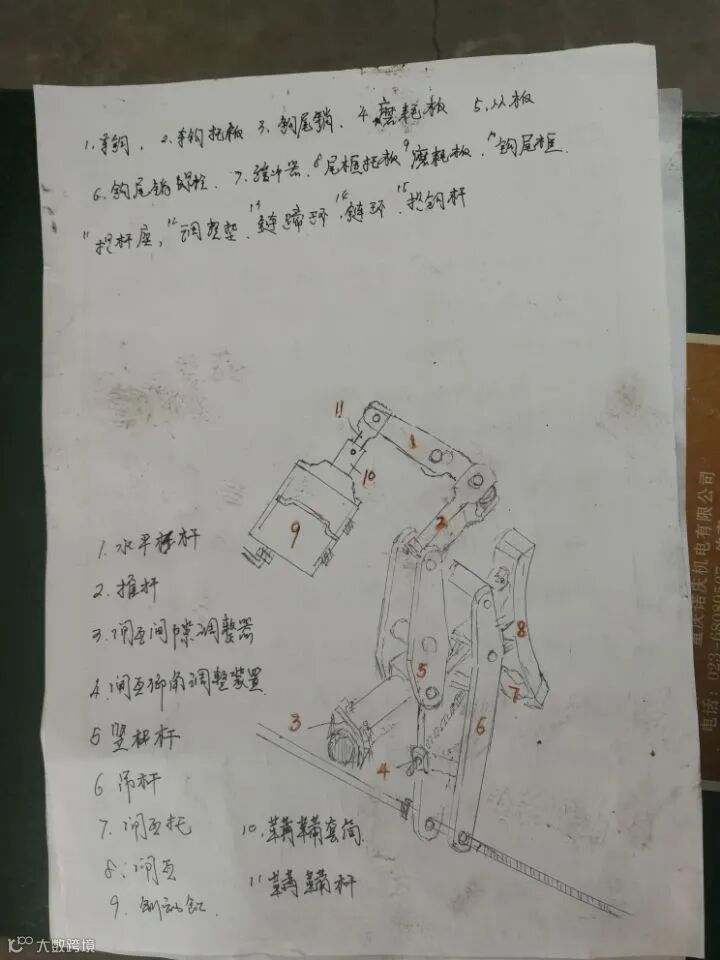 1.车钩、2.车钩托板 3.钩尾销、4.磨耗板 5.从板
6.钩尾销螺栓、7.缓冲器、8尾框托板 9磨耗板、10钩尾框.
11提杆座、12调整垫、13链蹄环、14链环、15提钩杆
11
1
10
2
9
8
5
7
6
3
4
1.水平杠杆
2.推杆
3.闸瓦间隙调整器
4.闸瓦仰角调整装置
5竖杠杆
6吊杆
7.闸瓦托
8.闸瓦
9.制动缸
10.鞲鞴套筒
11鞲鞴杆
重庆诺庆机电有限公司
电话:023-
大数跨境